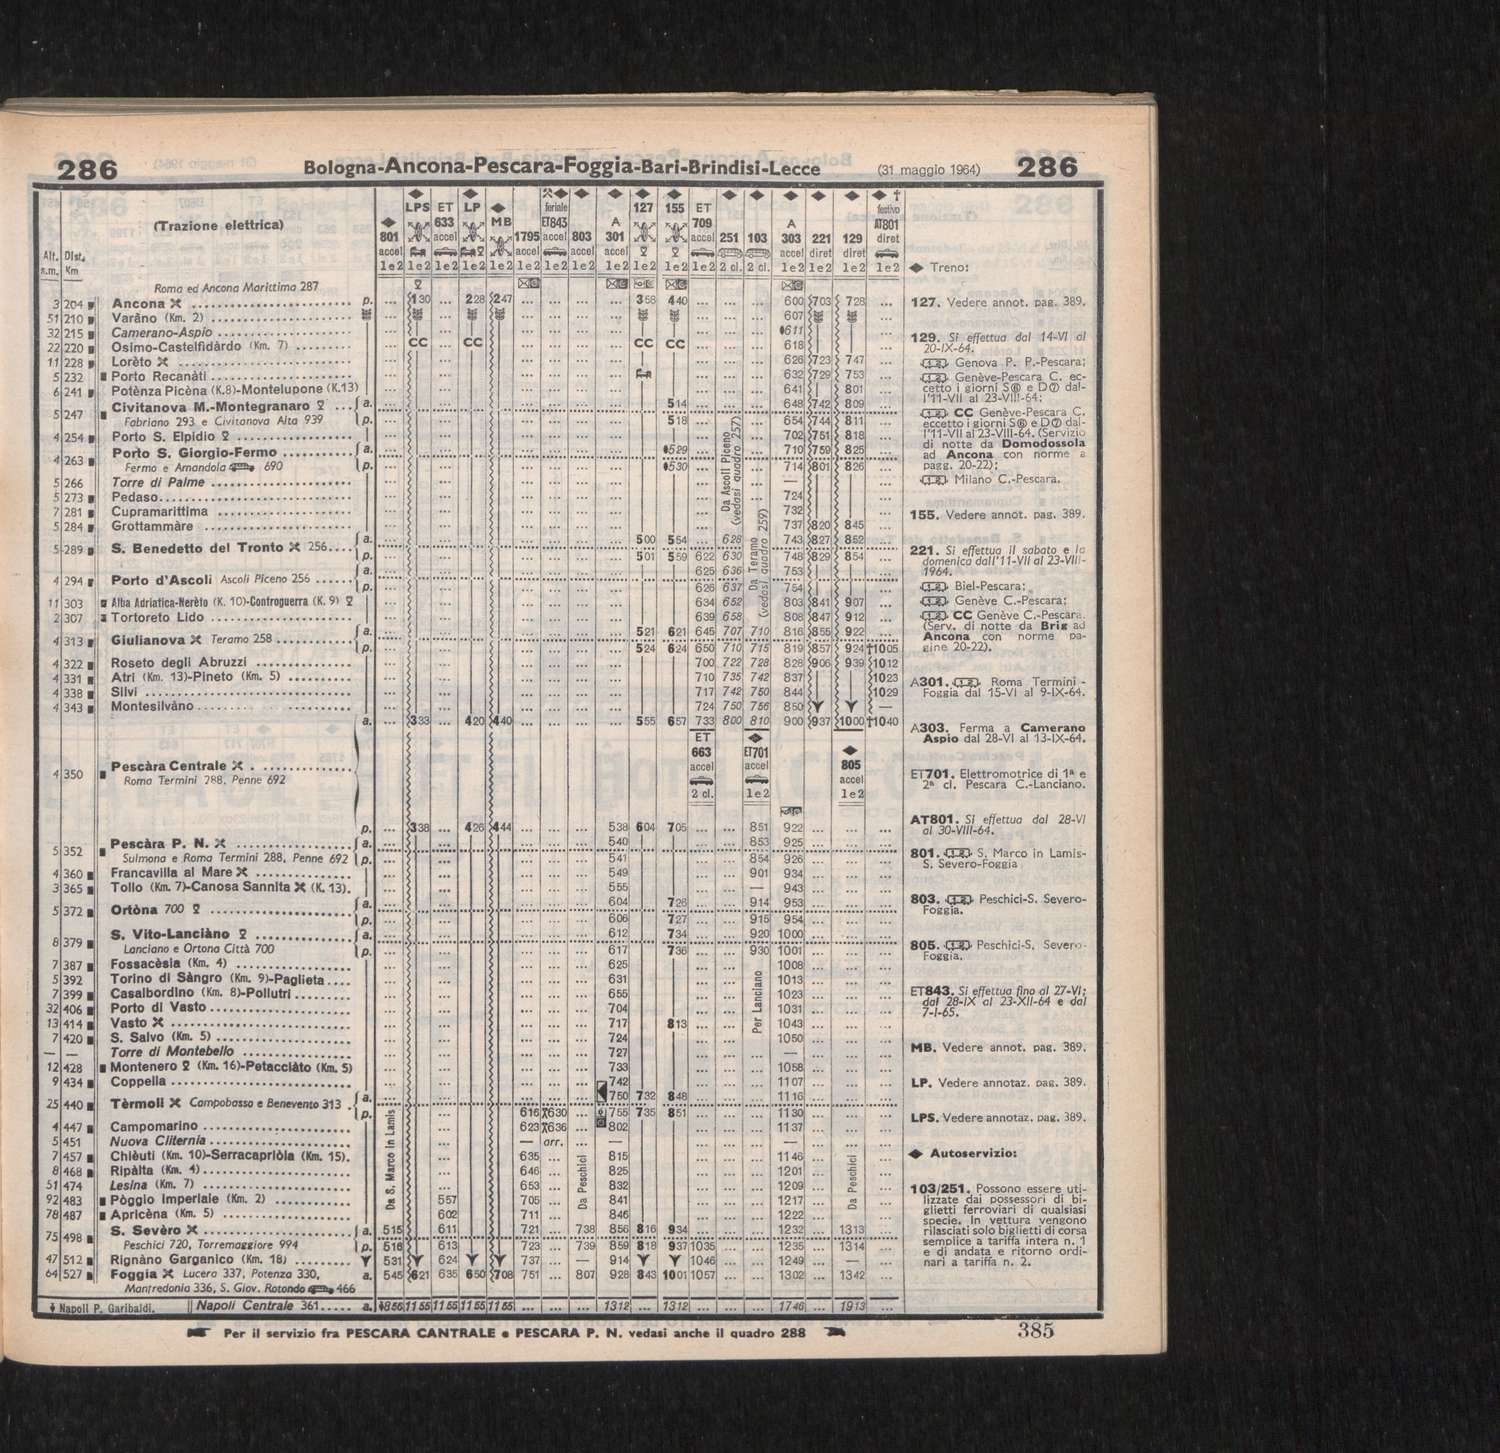 286 Bologna-Ancona-Pescara-Foggia-Bari-Brindisi-Lecce (31 maggio 1964) 286
(Trazione elettrica)
Alt. s.m. Dist. Km
801 accel 1e2
LPS 1e2
ET 633 accel 1e2
LP 1e2
MB 1e2
1795 accel 1e2
feriale ET843 accel 1e2
803 accel 1e2
A 301 accel 1e2
127 1e2
155 1e2
ET 709 accel 1e2
251 2 cl.
103 2 cl.
A 303 accel 1e2
221 diret 1e2
129 diret 1e2
festivo AT801 diret 1e2
Roma ed Ancona Marittima 287
3 204 Ancona p. ... 130 ... 228 247 ... ... ... ... 358 440 ... ... ... 600 703 728 ...
51 210 Varãno (Km. 2) 607
32 215 Camerano-Aspio 611
22 220 Osimo-Castelfidàrdo (Km. 7) CC CC CC CC 618
11 228 Lorèto 626 723 747
5 232 Porto Recanàti 632 729 753
6 241 Potènza Picèna (K.8)-Montelupone (K.13) 641 801
5 247 Civitanova M.-Montegranaro a. 514 648 742 809
Fabriano 293 e Civitanova Alta 939 p. 518 654 744 811
4 254 Porto S. Elpidio 702 751 818
4 263 Porto S. Giorgio-Fermo a. 529 710 759 825
Fermo e Amandola 690 p. 530 714 801 826
5 266 Torre di Palme —
5 273 Pedaso 724
7 281 Cupramarittima 732
5 284 Grottammàre 737 820 845
5 289 S. Benedetto del Tronto 256 a. 500 554 628 743 827 852
p. 501 559 622 630 748 829 854
4 294 Porto d'Ascoli Ascoli Piceno 256 a. 625 636 753
p. 626 637 754
11 303 Alba Adriatica-Nerèto (K. 10)-Controguerra (K. 9) 634 652 803 841 907
2 307 Tortoreto Lido 639 658 808 847 912
4 313 Giulianova Teramo 258 a. 521 621 645 707 710 816 855 922
p. 524 624 650 710 715 819 857 924 †1005
4 322 Roseto degli Abruzzi 700 722 728 828 906 939 1012
4 331 Atri (Km. 13)-Pineto (Km. 5) 710 735 742 837 1023
4 338 Silvi 717 742 750 844 1029
4 343 Montesilvàno 724 750 756 850 —
a. ... 333 ... 420 440 ... 555 657 733 800 810 900 937 1000 †1040
Da Ascoli Piceno (vedasi quadro 257)
Da Teramo (vedasi quadro 259)
ET 663 accel 2 cl.
ET701 accel 1e2
805 accel 1e2
4 350 Pescàra Centrale
Roma Termini 288, Penne 692
p. ... 338 ... 426 444 ... 538 604 705 ... ... 851 922 ... ... ...
5 352 Pescàra P. N. a. 540 853 925
Sulmona e Roma Termini 288, Penne 692 p. 541 854 926
4 360 Francavilla al Mare 549 901 934
3 365 Tollo (Km. 7)-Canosa Sannita (K. 13). 555 — 943
5 372 Ortòna 700 a. 604 726 914 953
p. 606 727 915 954
8 379 S. Vito-Lanciàno a. 612 734 920 1000
Lanciano e Ortona Città 700 p. 617 736 930 1001
7 387 Fossacèsia (Km. 4) 625 1008
5 392 Torino di Sàngro (Km. 9)-Paglieta 631 1013
7 399 Casalbordino (Km. 8)-Pollutri 655 1023
32 406 Porto di Vasto 704 1031
13 414 Vasto 717 813 1043
7 420 S. Salvo (Km. 5) 724 1050
— — Torre di Montebello 727 —
12 428 Montenero (Km. 16)-Petacciàto (Km. 5) 733 1058
9 434 Coppella 742 1107
25 440 Tèrmoli Campobasso e Benevento 313 a. 750 732 848 1116
p. 616 630 755 735 851 1130
4 447 Campomarino 623 636 802 1137
5 451 Nuova Cliternia — arr. — —
7 457 Chièuti (Km. 10)-Serracapriòla (Km. 15). 635 815 1146
8 468 Ripàlta (Km. 4) 646 825 1201
51 474 Lesina (Km. 7) 653 832 1209
92 483 Pòggio Imperiale (Km. 2) 557 705 841 1217
78 487 Apricèna (Km. 5) 602 711 846 1222
75 498 S. Sevèro a. 515 611 721 738 856 816 934 1232 1313
Peschici 720, Torremaggiore 994 p. 516 613 723 739 859 818 937 1035 1235 1314
47 512 Rignàno Garganico (Km. 18) 531 624 737 — 914 1046 1249 —
64 527 Foggia Lucera 337, Potenza 330, a. 545 621 635 650 708 751 ... 807 928 843 1001 1057 ... ... 1302 ... 1342 ...
Manfredonia 336, S. Giov. Rotondo 466
Per Lanciano
Da S. Marco in Lamis
Da Peschici
Da Peschici
Napoli P. Garibaldi. Napoli Centrale 361 a. 856 1155 1155 1155 1155 ... ... ... 1312 ... 1312 ... ... ... 1746 ... 1913 ...
Treno:
127. Vedere annot. pag. 389.
129. Si effettua dal 14-VI al
20-IX-64.
Genova P. P.-Pescara;
Genève-Pescara C. ec-
cetto i giorni S⑥ e D⑦ dal-
l'11-VII al 23-VIII-64;
CC Genève-Pescara C.
eccetto i giorni S⑥ e D⑦ dal-
l'11-VII al 23-VIII-64. (Servizio
di notte da Domodossola
ad Ancona con norme a
pagg. 20-22);
Milano C.-Pescara.
155. Vedere annot. pag. 389.
221. Si effettua il sabato e la
domenica dall'11-VII al 23-VIII-
1964.
Biel-Pescara;
Genève C.-Pescara;
CC Genève C.-Pescara.
(Serv. di notte da Brig ad
Ancona con norme pa-
gine 20-22).
A301. Roma Termini -
Foggia dal 15-VI al 9-IX-64.
A303. Ferma a Camerano
Aspio dal 28-VI al 13-IX-64.
ET701. Elettromotrice di 1ª e
2ª cl. Pescara C.-Lanciano.
AT801. Si effettua dal 28-VI
al 30-VIII-64.
801. S. Marco in Lamis-
S. Severo-Foggia
803. Peschici-S. Severo-
Foggia.
805. Peschici-S. Severo-
Foggia.
ET843. Si effettua fino al 27-VI;
dal 28-IX al 23-XII-64 e dal
7-I-65.
MB. Vedere annot. pag. 389.
LP. Vedere annotaz. pag. 389.
LPS. Vedere annotaz. pag. 389.
Autoservizio:
103/251. Possono essere uti-
lizzate dai possessori di bi-
glietti ferroviari di qualsiasi
specie. In vettura vengono
rilasciati solo biglietti di corsa
semplice a tariffa intera n. 1
e di andata e ritorno ordi-
nari a tariffa n. 2.
Per il servizio fra PESCARA CANTRALE e PESCARA P. N. vedasi anche il quadro 288
385